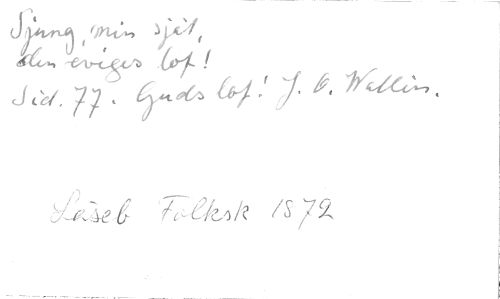 Sjung, min själ,
den eviges lof!
Sid. 77. Guds lof! J. O. Wallin.
Läseb Folksk 1872